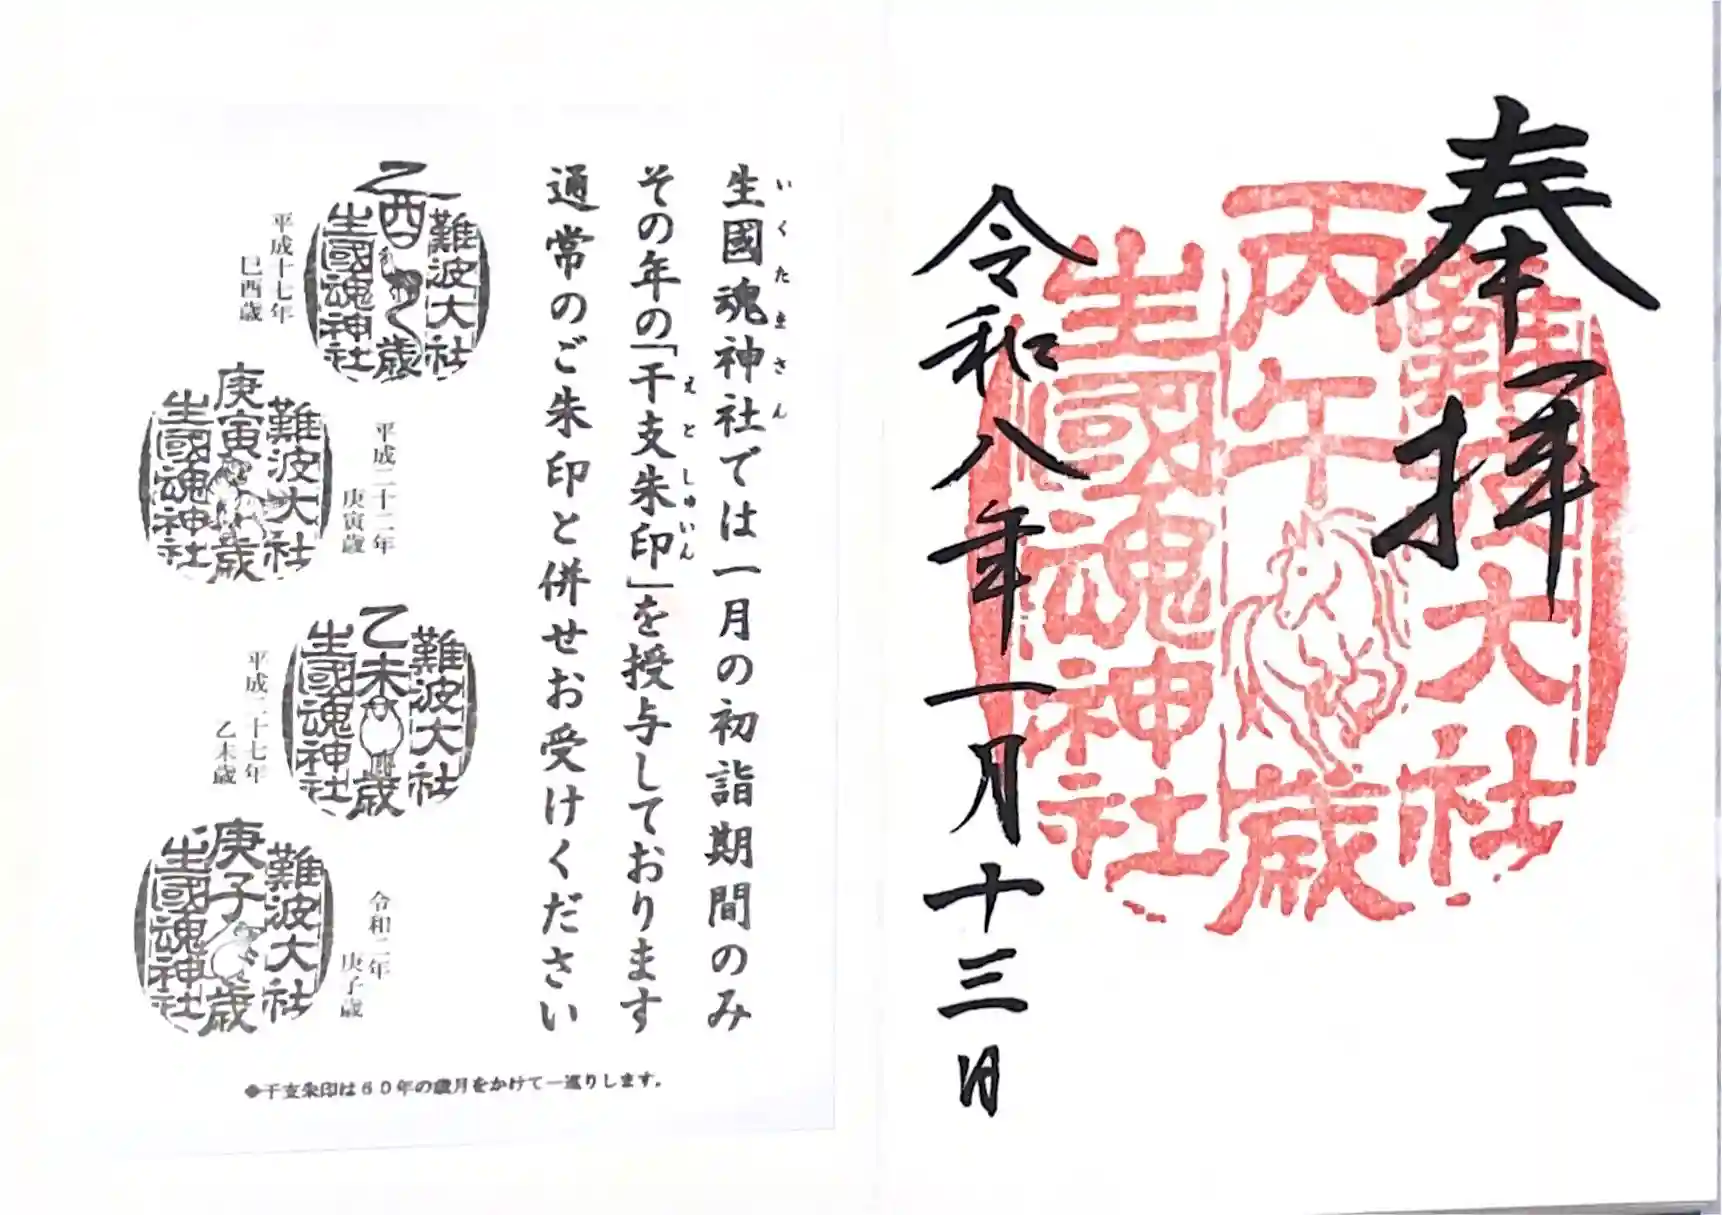 奉拝
難波大社
丙午歳
生國魂神社
令和八年一月十三日
生國魂神社では一月の初詣期間のみ
いくたまさん
その年の「干支朱印」を授与しております
えとしゅいん
通常のご朱印と併せお受けください
難波大社
乙酉歳
生國魂神社
平成十七年
巳酉歳
平成二十二年
庚寅歳
難波大社
庚寅歳
生國魂神社
難波大社
乙未歳
生國魂神社
平成二十七年
乙未歳
令和二年
庚子歳
難波大社
庚子歳
生國魂神社
◆干支朱印は60年の歳月をかけて一巡りします。